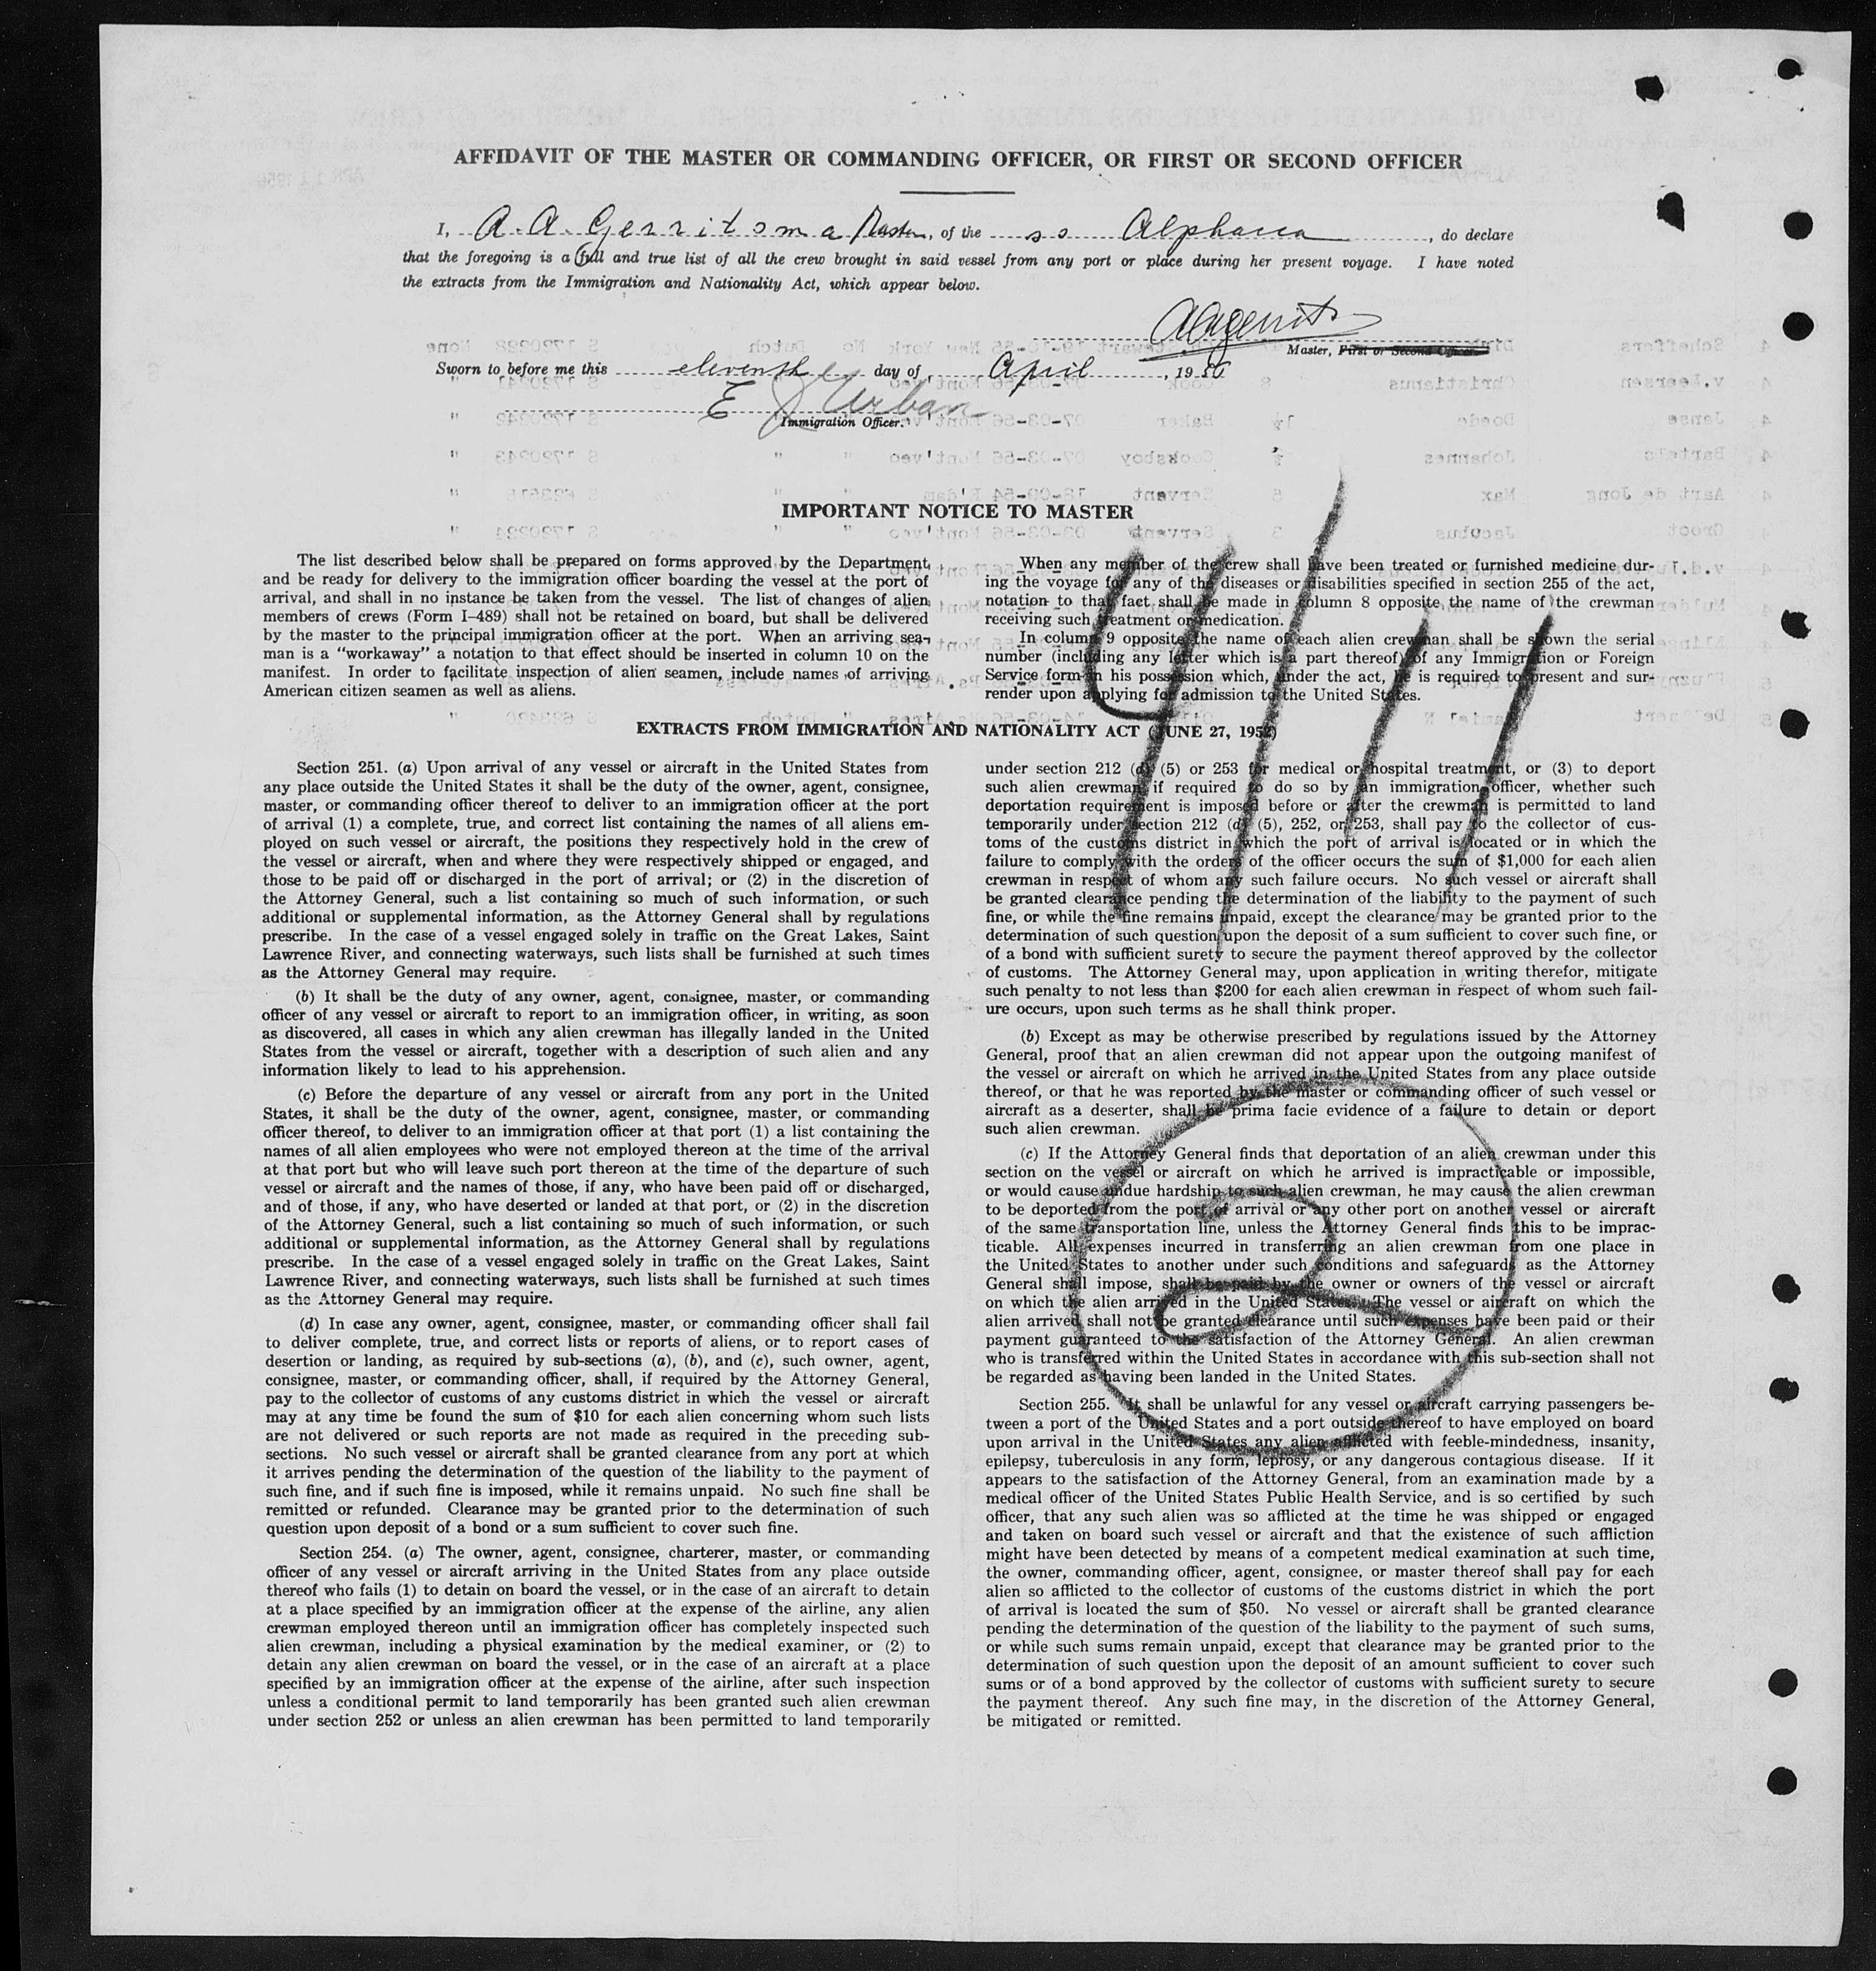 AFFIDAVIT OF THE MASTER OR COMMANDING OFFICER, OR FIRST OR SECOND OFFICER
I, A. A. Gerritsma Master, of the ss Alphacca, do declare
that the foregoing is a full and true list of all the crew brought in said vessel from any port or place during her present voyage. I have noted
the extracts from the Immigration and Nationality Act, which appear below.
Master, First or Second Officer.
Sworn to before me this eleventh day of April, 1956
E J Urban
Immigration Officer.
IMPORTANT NOTICE TO MASTER
The list described below shall be prepared on forms approved by the Department
and be ready for delivery to the immigration officer boarding the vessel at the port of
arrival, and shall in no instance be taken from the vessel. The list of changes of alien
members of crews (Form I-489) shall not be retained on board, but shall be delivered
by the master to the principal immigration officer at the port. When an arriving sea-
man is a "workaway" a notation to that effect should be inserted in column 10 on the
manifest. In order to facilitate inspection of alien seamen, include names of arriving
American citizen seamen as well as aliens.
When any member of the crew shall have been treated or furnished medicine dur-
ing the voyage for any of the diseases or disabilities specified in section 255 of the act,
notation to that fact shall be made in column 8 opposite the name of the crewman
receiving such treatment or medication.
In column 9 opposite the name of each alien crewman shall be shown the serial
number (including any letter which is a part thereof) of any Immigration or Foreign
Service form in his possession which, under the act, he is required to present and sur-
render upon applying for admission to the United States.
4/11
EXTRACTS FROM IMMIGRATION AND NATIONALITY ACT (JUNE 27, 1952)
Section 251. (a) Upon arrival of any vessel or aircraft in the United States from
any place outside the United States it shall be the duty of the owner, agent, consignee,
master, or commanding officer thereof to deliver to an immigration officer at the port
of arrival (1) a complete, true, and correct list containing the names of all aliens em-
ployed on such vessel or aircraft, the positions they respectively hold in the crew of
the vessel or aircraft, when and where they were respectively shipped or engaged, and
those to be paid off or discharged in the port of arrival; or (2) in the discretion of
the Attorney General, such a list containing so much of such information, or such
additional or supplemental information, as the Attorney General shall by regulations
prescribe. In the case of a vessel engaged solely in traffic on the Great Lakes, Saint
Lawrence River, and connecting waterways, such lists shall be furnished at such times
as the Attorney General may require.
(b) It shall be the duty of any owner, agent, consignee, master, or commanding
officer of any vessel or aircraft to report to an immigration officer, in writing, as soon
as discovered, all cases in which any alien crewman has illegally landed in the United
States from the vessel or aircraft, together with a description of such alien and any
information likely to lead to his apprehension.
(c) Before the departure of any vessel or aircraft from any port in the United
States, it shall be the duty of the owner, agent, consignee, master, or commanding
officer thereof, to deliver to an immigration officer at that port (1) a list containing the
names of all alien employees who were not employed thereon at the time of the arrival
at that port but who will leave such port thereon at the time of the departure of such
vessel or aircraft and the names of those, if any, who have been paid off or discharged,
and of those, if any, who have deserted or landed at that port, or (2) in the discretion
of the Attorney General, such a list containing so much of such information, or such
additional or supplemental information, as the Attorney General shall by regulations
prescribe. In the case of a vessel engaged solely in traffic on the Great Lakes, Saint
Lawrence River, and connecting waterways, such lists shall be furnished at such times
as the Attorney General may require.
(d) In case any owner, agent, consignee, master, or commanding officer shall fail
to deliver complete, true, and correct lists or reports of aliens, or to report cases of
desertion or landing, as required by sub-sections (a), (b), and (c), such owner, agent,
consignee, master, or commanding officer, shall, if required by the Attorney General,
pay to the collector of customs of any customs district in which the vessel or aircraft
may at any time be found the sum of $10 for each alien concerning whom such lists
are not delivered or such reports are not made as required in the preceding sub-
sections. No such vessel or aircraft shall be granted clearance from any port at which
it arrives pending the determination of the question of the liability to the payment of
such fine, and if such fine is imposed, while it remains unpaid. No such fine shall be
remitted or refunded. Clearance may be granted prior to the determination of such
question upon deposit of a bond or a sum sufficient to cover such fine.
Section 254. (a) The owner, agent, consignee, charterer, master, or commanding
officer of any vessel or aircraft arriving in the United States from any place outside
thereof who fails (1) to detain on board the vessel, or in the case of an aircraft to detain
at a place specified by an immigration officer at the expense of the airline, any alien
crewman employed thereon until an immigration officer has completely inspected such
alien crewman, including a physical examination by the medical examiner, or (2) to
detain any alien crewman on board the vessel, or in the case of an aircraft at a place
specified by an immigration officer at the expense of the airline, after such inspection
unless a conditional permit to land temporarily has been granted such alien crewman
under section 252 or unless an alien crewman has been permitted to land temporarily
under section 212 (d) (5) or 253 for medical or hospital treatment, or (3) to deport
such alien crewman if required to do so by an immigration officer, whether such
deportation requirement is imposed before or after the crewman is permitted to land
temporarily under section 212 (d) (5), 252, or 253, shall pay to the collector of cus-
toms of the customs district in which the port of arrival is located or in which the
failure to comply with the orders of the officer occurs the sum of $1,000 for each alien
crewman in respect of whom any such failure occurs. No such vessel or aircraft shall
be granted clearance pending the determination of the liability to the payment of such
fine, or while the fine remains unpaid, except the clearance may be granted prior to the
determination of such question upon the deposit of a sum sufficient to cover such fine, or
of a bond with sufficient surety to secure the payment thereof approved by the collector
of customs. The Attorney General may, upon application in writing therefor, mitigate
such penalty to not less than $200 for each alien crewman in respect of whom such fail-
ure occurs, upon such terms as he shall think proper.
(b) Except as may be otherwise prescribed by regulations issued by the Attorney
General, proof that an alien crewman did not appear upon the outgoing manifest of
the vessel or aircraft on which he arrived in the United States from any place outside
thereof, or that he was reported by the master or commanding officer of such vessel or
aircraft as a deserter, shall be prima facie evidence of a failure to detain or deport
such alien crewman.
(c) If the Attorney General finds that deportation of an alien crewman under this
section on the vessel or aircraft on which he arrived is impracticable or impossible,
or would cause undue hardship to such alien crewman, he may cause the alien crewman
to be deported from the port of arrival or any other port on another vessel or aircraft
of the same transportation line, unless the Attorney General finds this to be imprac-
ticable. All expenses incurred in transferring an alien crewman from one place in
the United States to another under such conditions and safeguards as the Attorney
General shall impose, shall be paid by the owner or owners of the vessel or aircraft
on which the alien arrived in the United States. The vessel or aircraft on which the
alien arrived shall not be granted clearance until such expenses have been paid or their
payment guaranteed to the satisfaction of the Attorney General. An alien crewman
who is transferred within the United States in accordance with this sub-section shall not
be regarded as having been landed in the United States.
2
Section 255. It shall be unlawful for any vessel or aircraft carrying passengers be-
tween a port of the United States and a port outside thereof to have employed on board
upon arrival in the United States any alien afflicted with feeble-mindedness, insanity,
epilepsy, tuberculosis in any form, leprosy, or any dangerous contagious disease. If it
appears to the satisfaction of the Attorney General, from an examination made by a
medical officer of the United States Public Health Service, and is so certified by such
officer, that any such alien was so afflicted at the time he was shipped or engaged
and taken on board such vessel or aircraft and that the existence of such affliction
might have been detected by means of a competent medical examination at such time,
the owner, commanding officer, agent, consignee, or master thereof shall pay for each
alien so afflicted to the collector of customs of the customs district in which the port
of arrival is located the sum of $50. No vessel or aircraft shall be granted clearance
pending the determination of the question of the liability to the payment of such sums,
or while such sums remain unpaid, except that clearance may be granted prior to the
determination of such question upon the deposit of an amount sufficient to cover such
sums or of a bond approved by the collector of customs with sufficient surety to secure
the payment thereof. Any such fine may, in the discretion of the Attorney General,
be mitigated or remitted.